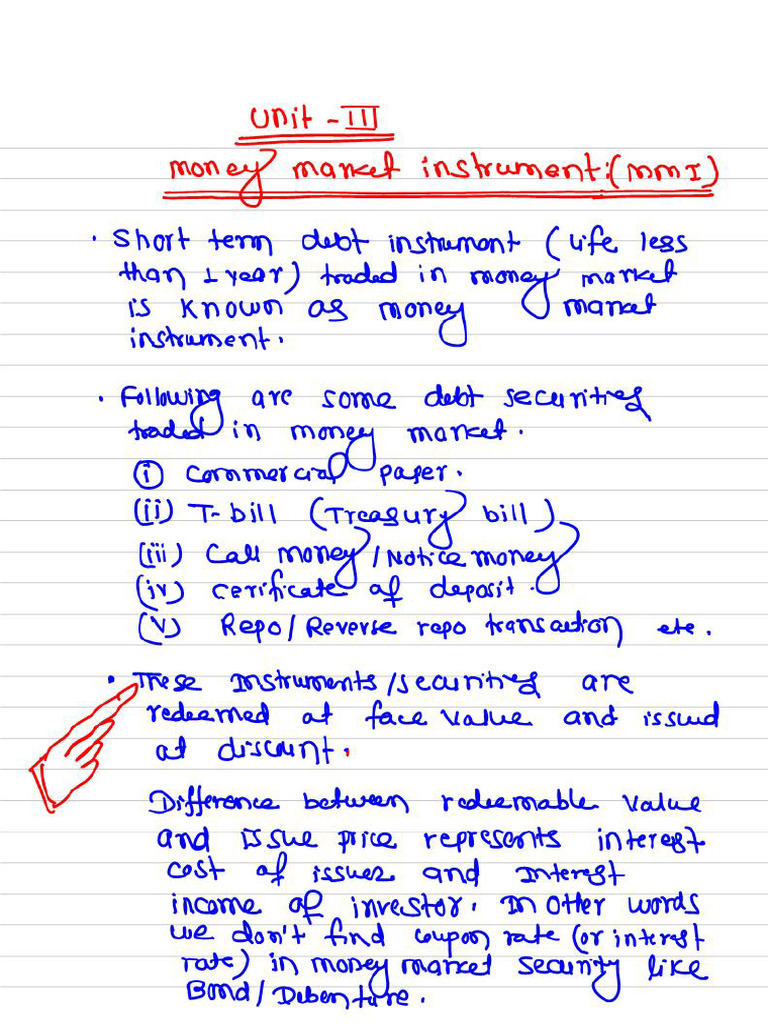 Unit - III
Money market instrument:(MMI)
• Short term debt instrument (Life less
than 1 year) traded in money market
is known as money market
instrument.
• Following are some debt securities
traded in money market.
(i) Commercial paper.
(ii) T-bill (Treasury bill)
(iii) Call money/Notice money
(iv) Cerificate of deposit.
(v) Repo/Reverse repo transaction etc.
• These Instruments/securities are
redeemed at face value and issued
at discount.
Difference between redeemable value
and issue price represents interest
cost of issuer and interest
income of investor. In other words
we don't find coupon rate (or interest
rate) in money market security like
Bond/Debenture.